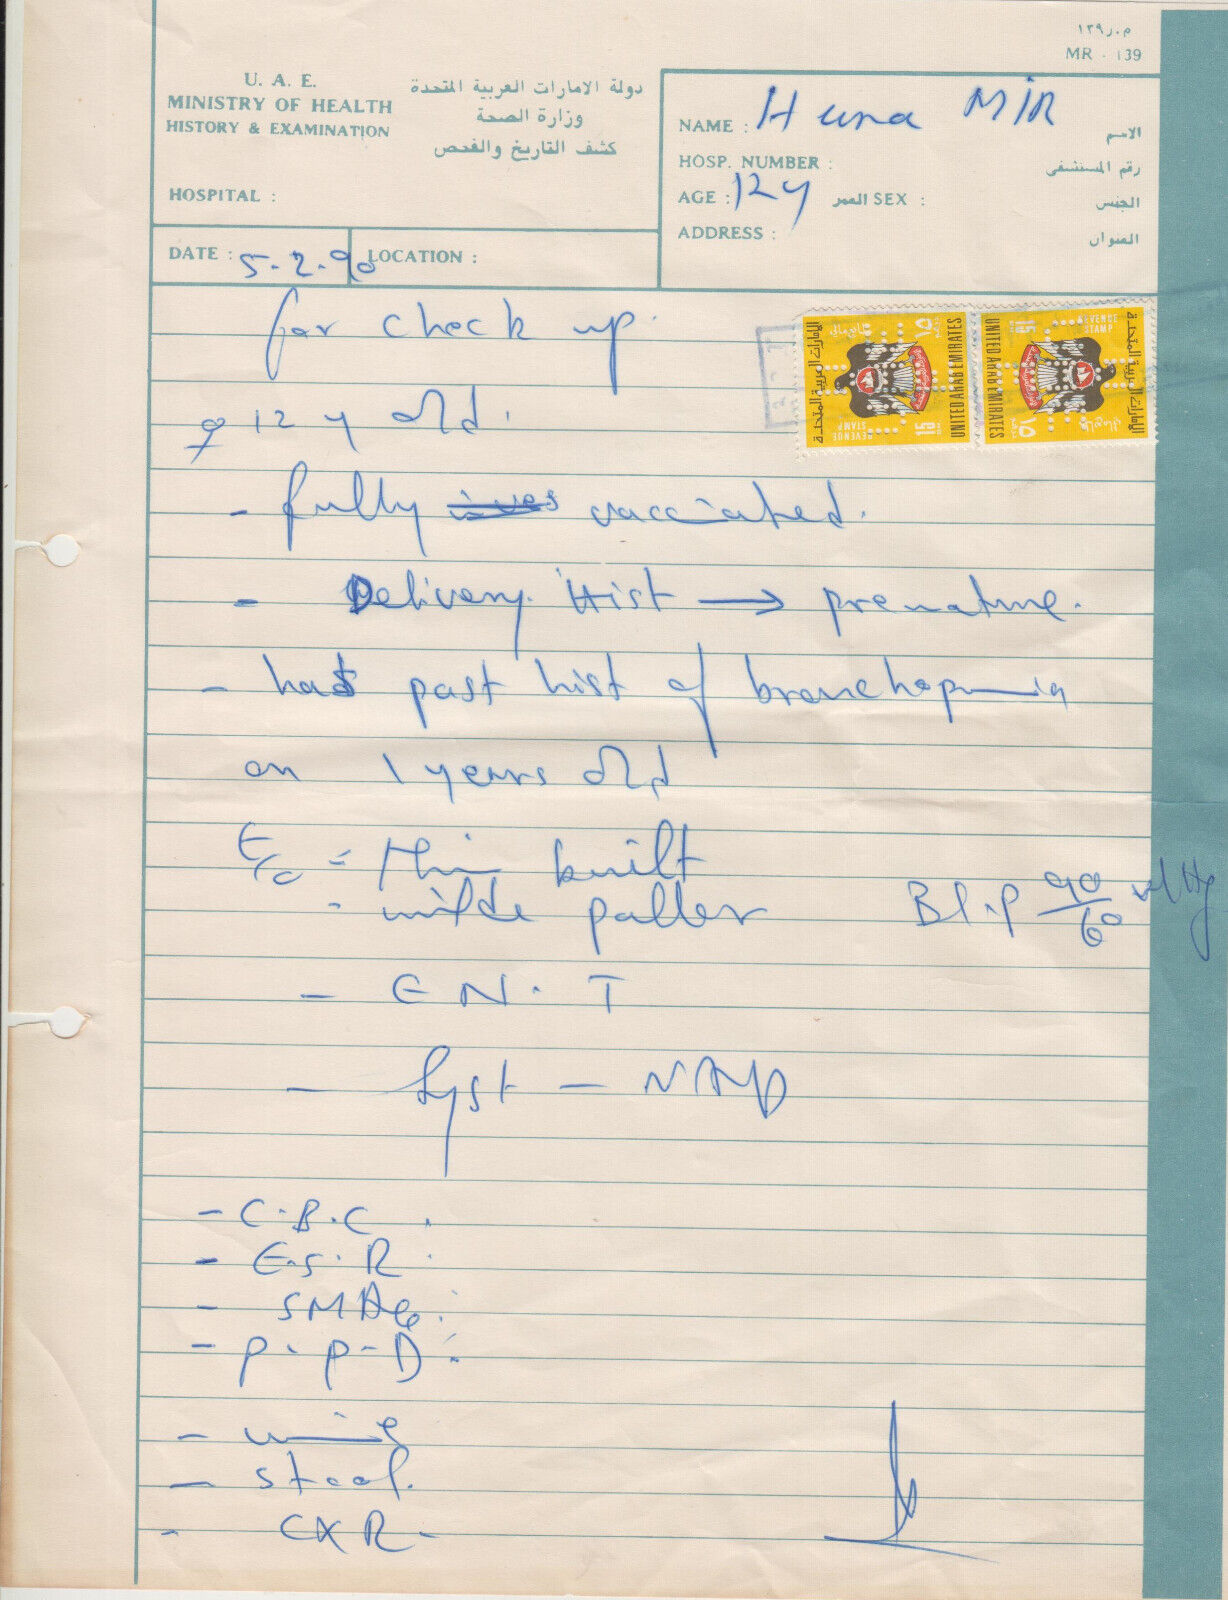 م.ر١٣٩
MR - 139
U. A. E.
MINISTRY OF HEALTH
HISTORY & EXAMINATION
دولة الامارات العربية المتحدة
وزارة الصحة
كشف التاريخ والفحص
HOSPITAL :
NAME : Huna MIR الاسم
HOSP. NUMBER : رقم المستشفى
AGE : 12 y العمر SEX : الجنس
ADDRESS : العنوان
DATE : 5-2-90 LOCATION :
for check up.
الإمارات العربية المتحدة
UNITED ARAB EMIRATES
REVENUE STAMP
15
١٥
UNITED ARAB EMIRATES
الإمارات العربية المتحدة
REVENUE STAMP
15
١٥
♀ 12 y old.
- fully vacciated.
- Delivery Hist → premature.
- has past hist of bronchopmia
on 1 years old
E/c - thin built
- milde paller Bl.P 90/60 mHg
- E N. T
- Syst - NAD
- C.B.C.
- E.S.R.
- SMA6.
- P.P-D.
- urine
- stool.
- CXR -